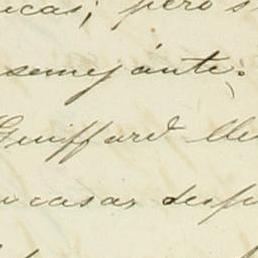 icas; pero s
semejante;
Guiffard lle
casas desp